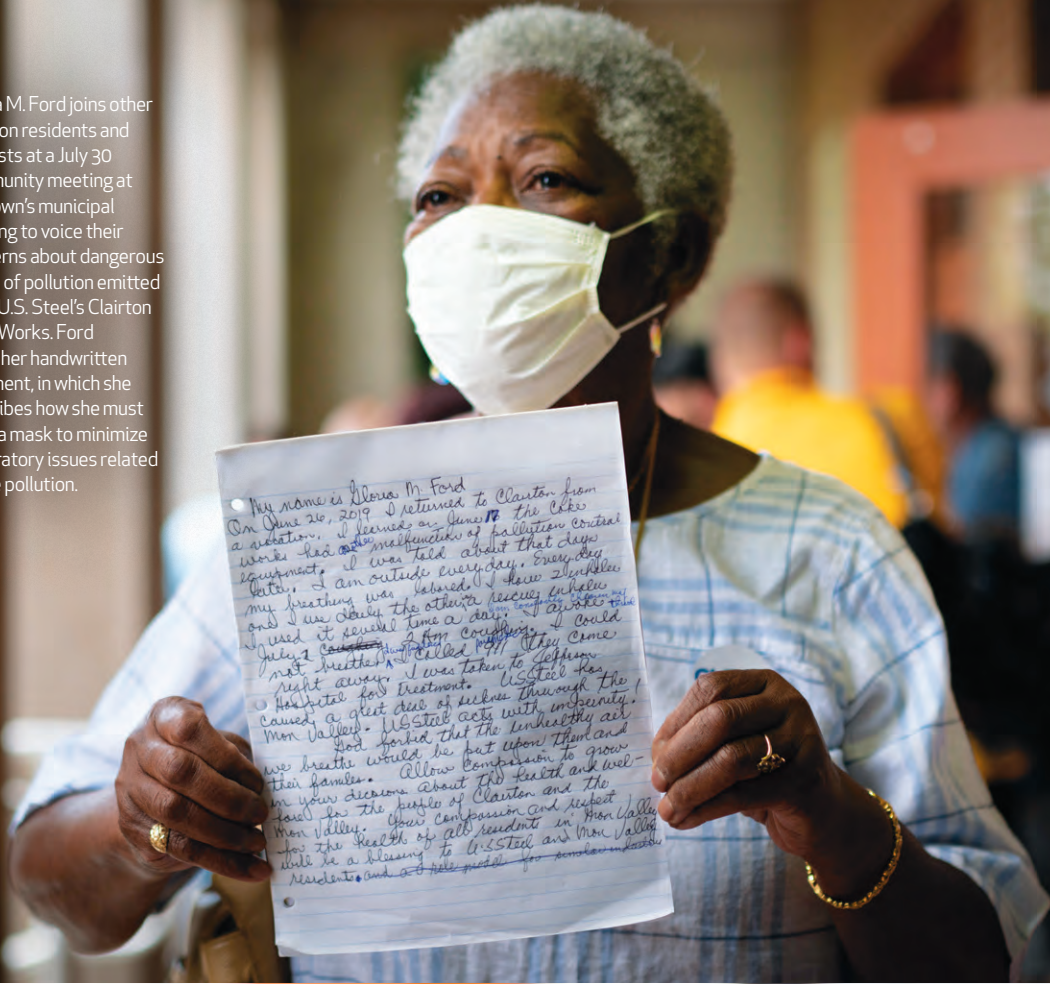 a M. Ford joins other
on residents and
sts at a July 30
munity meeting at
own's municipal
ng to voice their
erns about dangerous
of pollution emitted
U.S. Steel's Clairton
Works. Ford
her handwritten
ment, in which she
ribes how she must
a mask to minimize
ratory issues related
e pollution.
My name is Gloria M. Ford
On June 26, 2019 I returned to Clairton from
a vacation. I learned on June 17 the Coke
works had another malfunction of pollution control
equipment. I was told about that days
later. I am outside everyday. Everyday
my breathing was labored. I have 2 inhaler
one I use daily the other a rescue inhaler
I used it several time a day. I awoke
July 1 2 Am coughing. I could
not breathe. I called 911 They came
right away. I was taken to Jefferson
Hospital for treatment. USSteel has
caused a great deal of sicknes through the
Mon Valley. USSteel acts with impunity!
God forbid that the unhealthy air
we breathe would be put upon them and
their families. Allow compassion to grow
in your decisions about the health and wel-
for the people of Clairton and the
Mon Valley. Your compassion and respect
for the health of all resident in Mon Valley
will be a blessing to USSteel and Mon Valley
residents. and a role model for